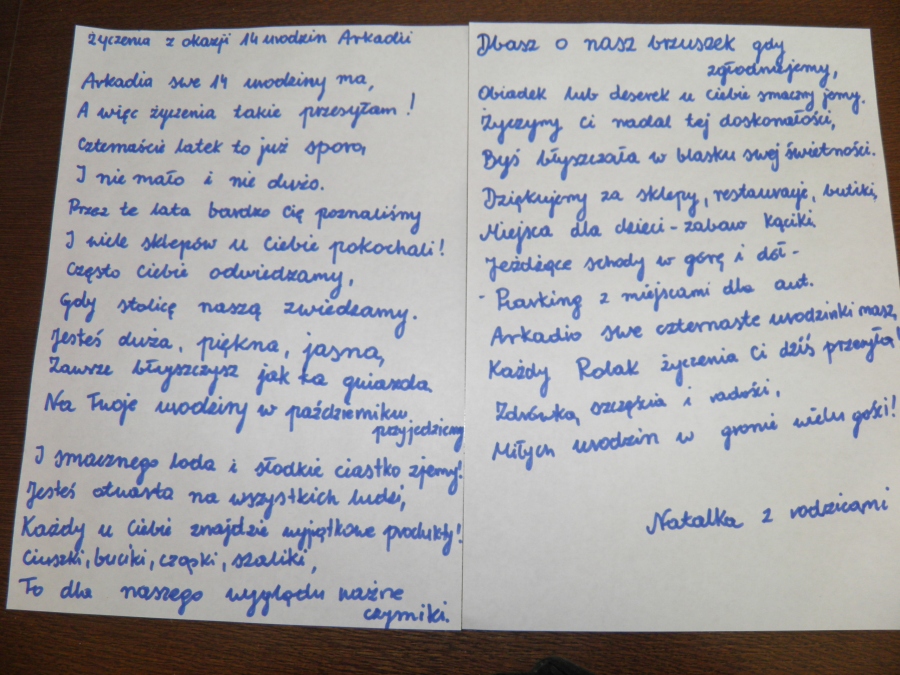 Życzenia z okazji 14 urodzin Arkadii
Arkadia swe 14 urodziny ma,
A więc życzenia takie przesyłam!
Czternaście latek to już sporo,
I nie mało i nie dużo.
Przez te lata bardzo Cię poznaliśmy
I wiele sklepów u Ciebie pokochali!
Często Ciebie odwiedzamy,
Gdy stolicę naszą zwiedzamy.
Jesteś duża, piękna, jasna,
Zawsze błyszczysz jak ta gwiazda
Na Twoje urodziny w październiku
przyjedziemy
I smacznego loda i słodkie ciastko zjemy!
Jesteś otwarta na wszystkich ludzi,
Każdy u Ciebie znajdzie wyjątkowe produkty!
Ciuszki, buciki, czapki, szaliki,
To dla naszego wyglądu ważne
czynniki.
Dbasz o nasz brzuszek gdy
zgłodniejemy,
Obiadek lub deserek u Ciebie smaczny jemy.
Życzymy Ci nadal tej doskonałości,
Byś błyszczała w blasku swej świetności.
Dziękujemy za sklepy, restauracje, butiki,
Miejsca dla dzieci - zabaw kąciki
Jeżdżące schody w górę i dół -
- Parking z miejscami dla aut.
Arkadio swe czternaste urodzinki masz,
Każdy Polak życzenia Ci dziś przesyła!
Zdrówka, szczęścia i radości,
Miłych urodzin w gronie wielu gości!
Natalka z rodzicami